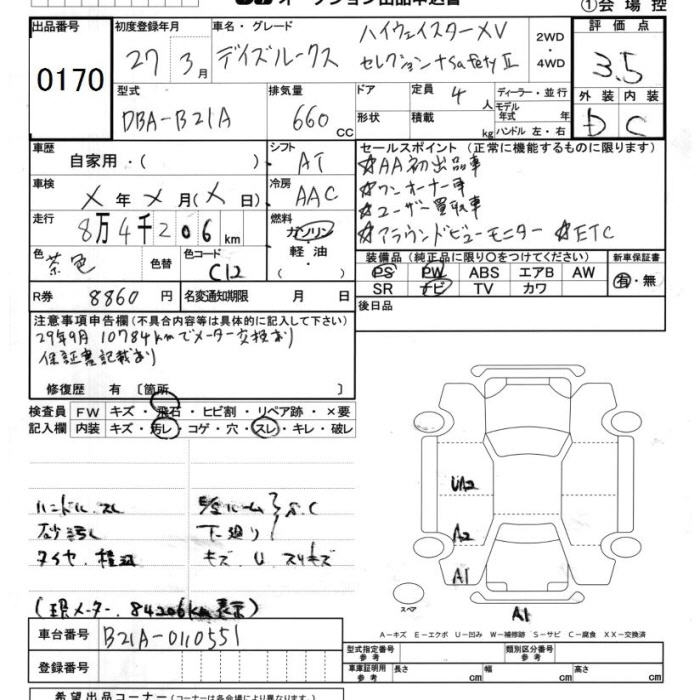 ①会場控
出品番号 初度登録年月 車名・グレード ハイウェイスターXV 2WD・4WD 評価点
0170 27年3月 デイズルークス セレクション+SafetyⅡ 3.5
型式 排気量 ドア 定員 4人 ディーラー・並行 外装 内装
DBA-B21A 660cc 形状 積載 kg モデル年式 年 ハンドル 左・右 D C
車歴 自家用・( ) シフト AT セールスポイント (正常に機能するものに限ります)
☆AA初出品車
車検 ×年×月(×日) 冷房 AAC ☆ワンオーナー車
☆ユーザー買取車
走行 8万4千206km 燃料 ガソリン・軽油・ ☆アラウンドビューモニター ☆ETC
色 茶色 色替 色コード C12 装備品 (純正品に限り○をつけてください) 新車保証書
PS PW ABS エアB AW 有・無
SR ナビ TV カワ
R券 8860円 名変通知期限 月 日 後日品
注意事項申告欄 (不具合内容等は具体的に記入して下さい)
29年9月 10784kmでメーター交換あり
保証書記載あり
修復歴 有 〔箇所 〕
検査員 FW キズ・飛石・ヒビ割・リペア跡・×要
記入欄 内装 キズ・汚レ・コゲ・穴・スレ・キレ・破レ
ハンドル スレ ルーム S.C
汚レ 下廻り
タイヤ キズ U スリキズ
(現メーター 84206km表示)
UA2
A2
A1
A1
スペア
A−キズ E−エクボ U−凹み W−補修跡 S−サビ C−腐食 XX−交換済
車台番号 B21A-0110551
登録番号
型式指定番号 参考 類別区分番号 参考
車庫証明用 参考 長さ cm 幅 cm 高さ cm
希望出品コーナー